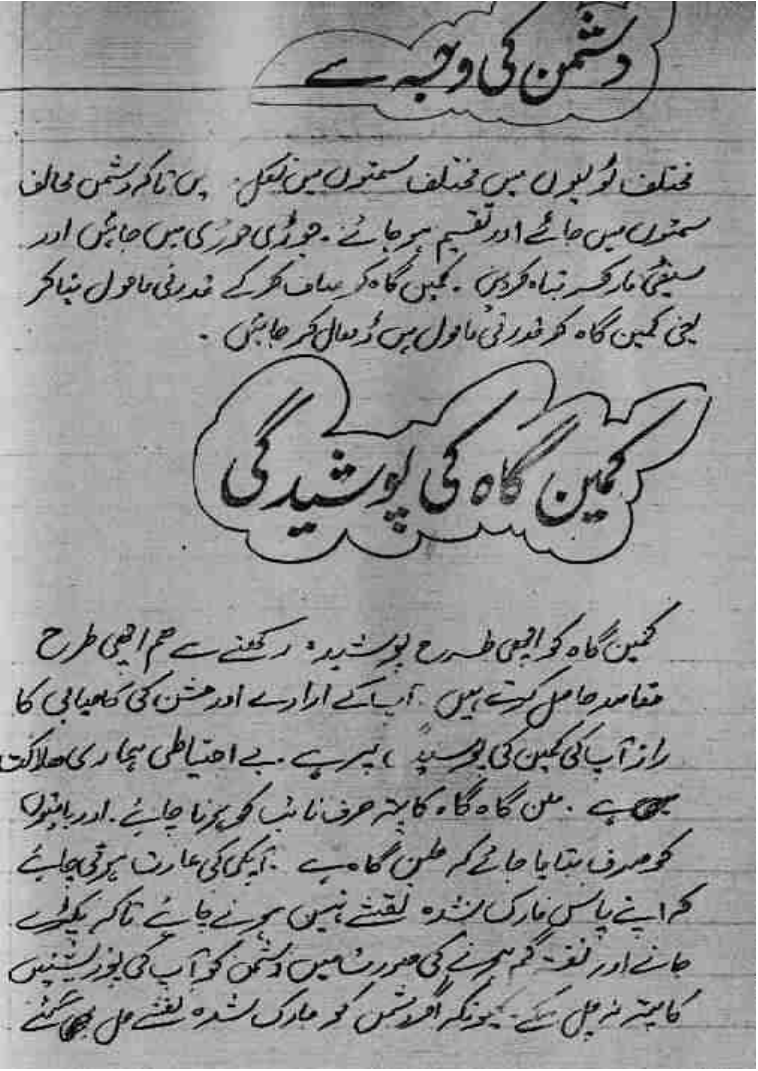 دشمن کی وجہ سے
مختلف ٹولیوں میں مختلف سمتوں میں نکل پس تاکہ دشمن مخالف
سمتوں میں جائے اور تقسیم ہو جائے۔ جوڑی جوڑی میں جائیں اور
سیفٹی مارکسر تباہ کردیں۔ کمین گاہ کو صاف کر کے قدرتی ماحول بنا کر
یعنی کمین گاہ کو قدرتی ماحول میں ڈھال کر جائیں۔
کمین گاہ کی پوشیدگی
کمین گاہ کو اچھی طرح پوشیدہ رکھنے سے ہم اچھی طرح
مقاصد حاصل کرتے ہیں۔ آپ کے ارادے اور مشن کی کامیابی کا
راز آپ کی کمین کی پر ہے۔ بے احتیاطی ہماری ہلاکت
ہے۔ گاہ گاہ کا پتہ صرف نائب کو ہونا چاہئے۔ اور باقیوں
کو صرف بتایا جائے کہ گاہ ہے۔ آپکی کی عادت ہونی چاہئے
کہ اپنے پاس مارک شدہ نقشے نہیں ہونے چاہئے تاکہ پکڑے
جانے اور نقشہ گم ہونے کی صورت میں دشمن کو آپ کی پوزیشنیں
کا پتہ نہ چل سکے۔ کیونکہ اگر دشمن کو مارک شدہ نقشے مل گئے